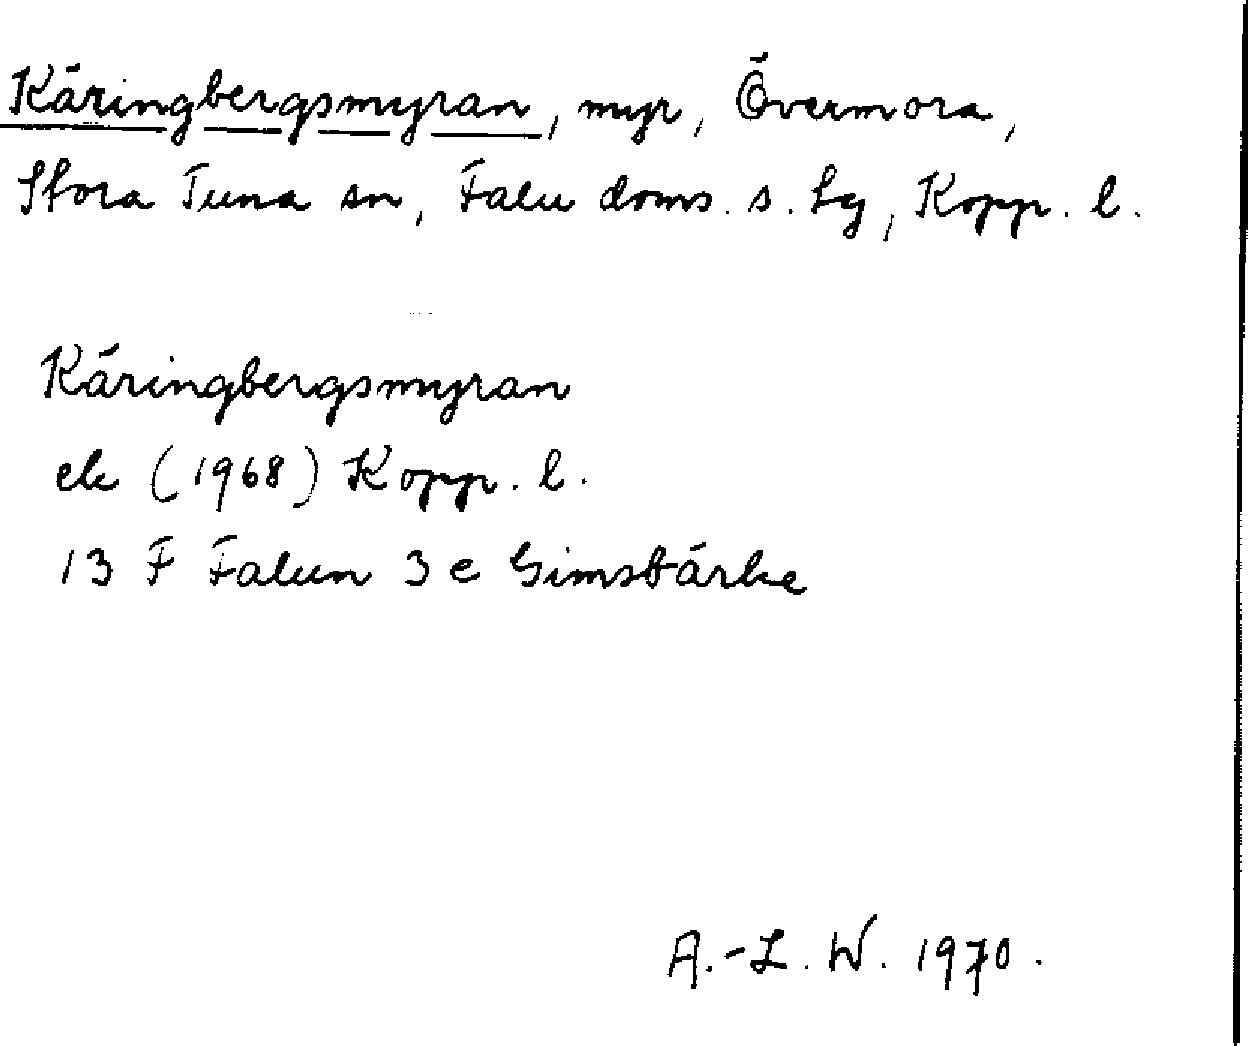 Käringbergsmyran, myr, Övermora,
Stora Tuna sn, Falu doms. s. tg, Kopp. l.
Käringbergsmyran
ek (1968) Kopp. l.
13 F Falun 3 e Gimsbärke
A.-L. W. 1970.